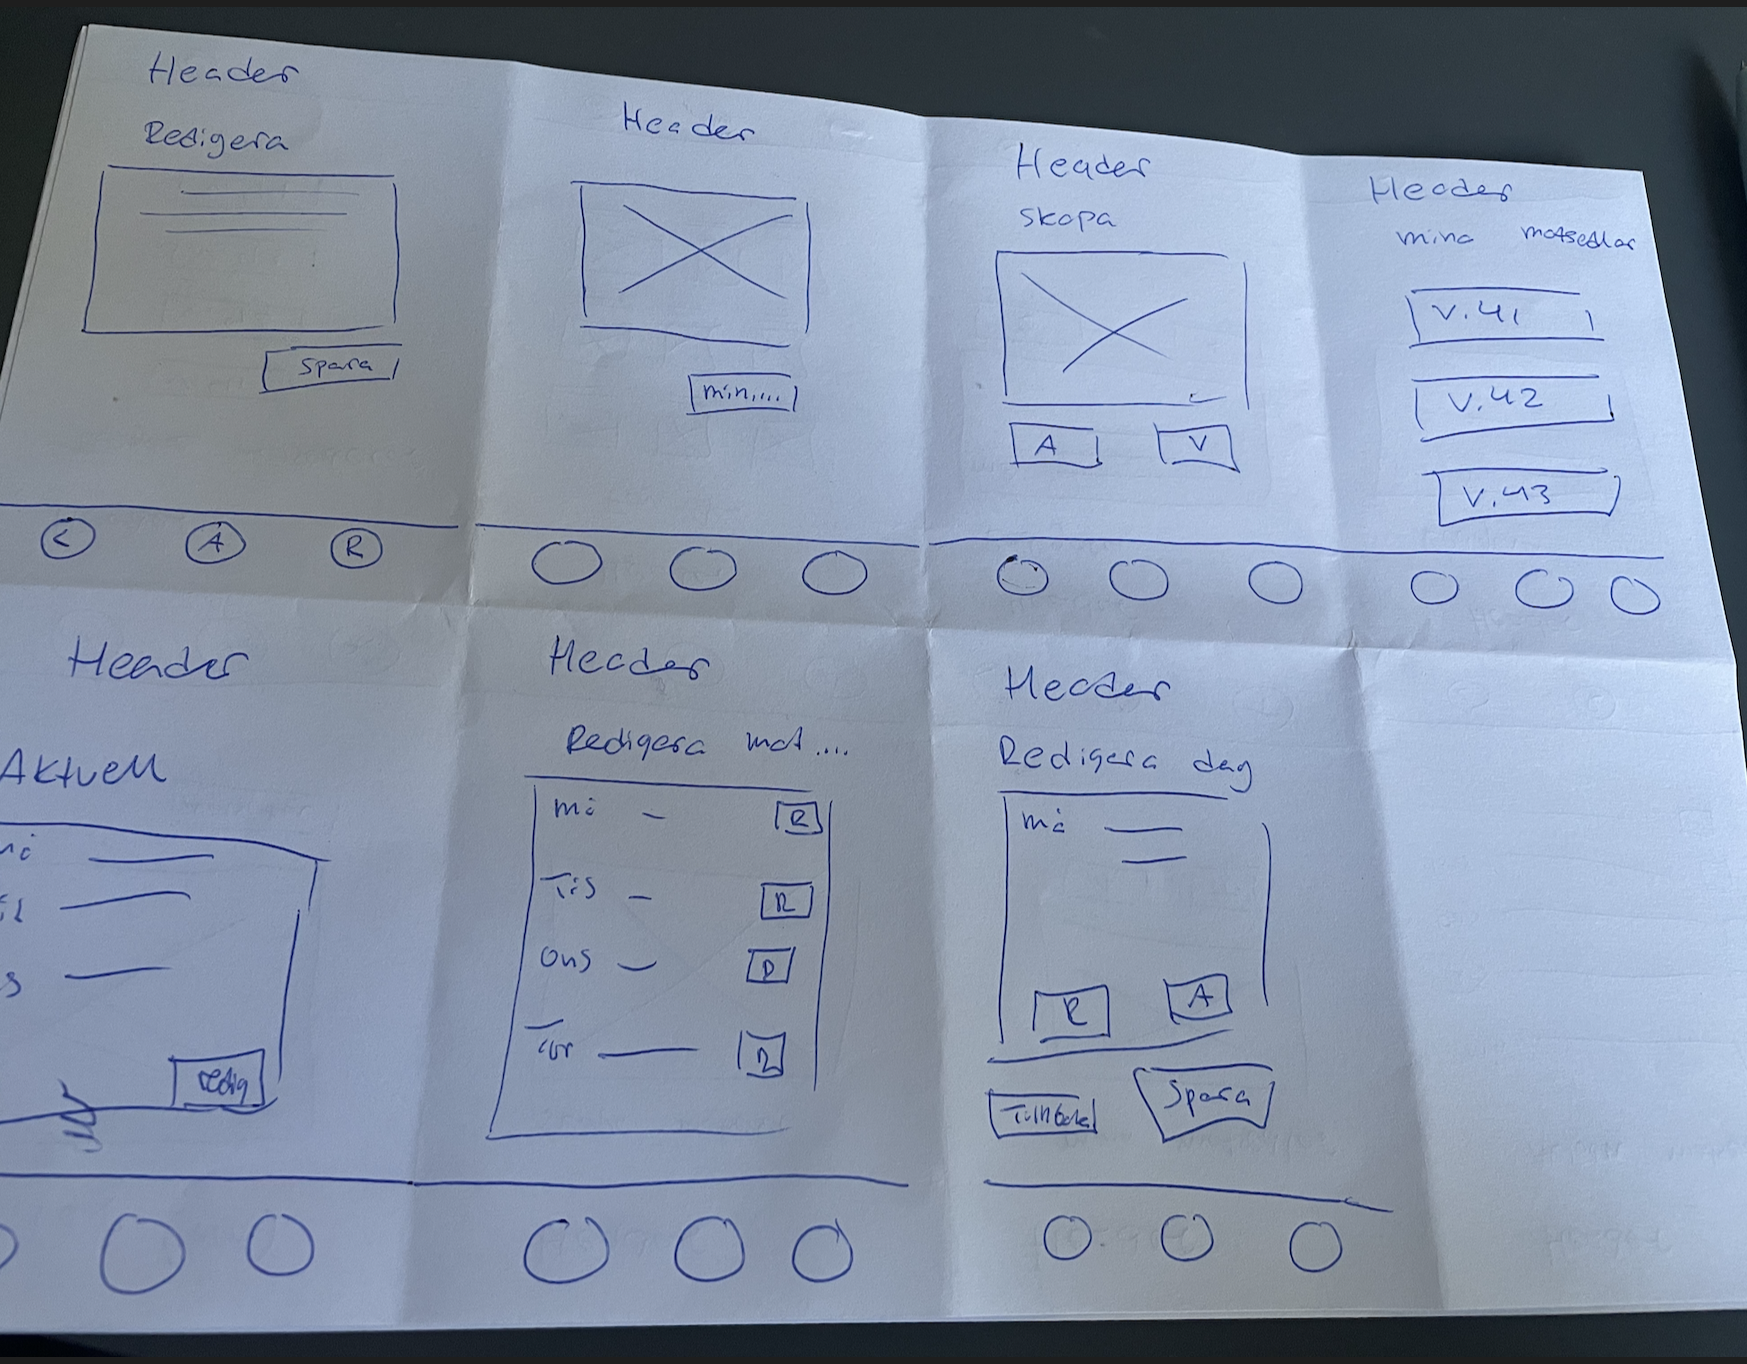 Header
Redigera
Spara
< A R
Header
min....
Header
skapa
A V
Header
mina matsedlar
V.41
V.42
V.43
Header
Aktuell
redig
Header
Redigera mat....
Må – R
Tis – R
Ons – R
Tor — R
Header
Redigera dag
Må
R A
Tillbaka Spara